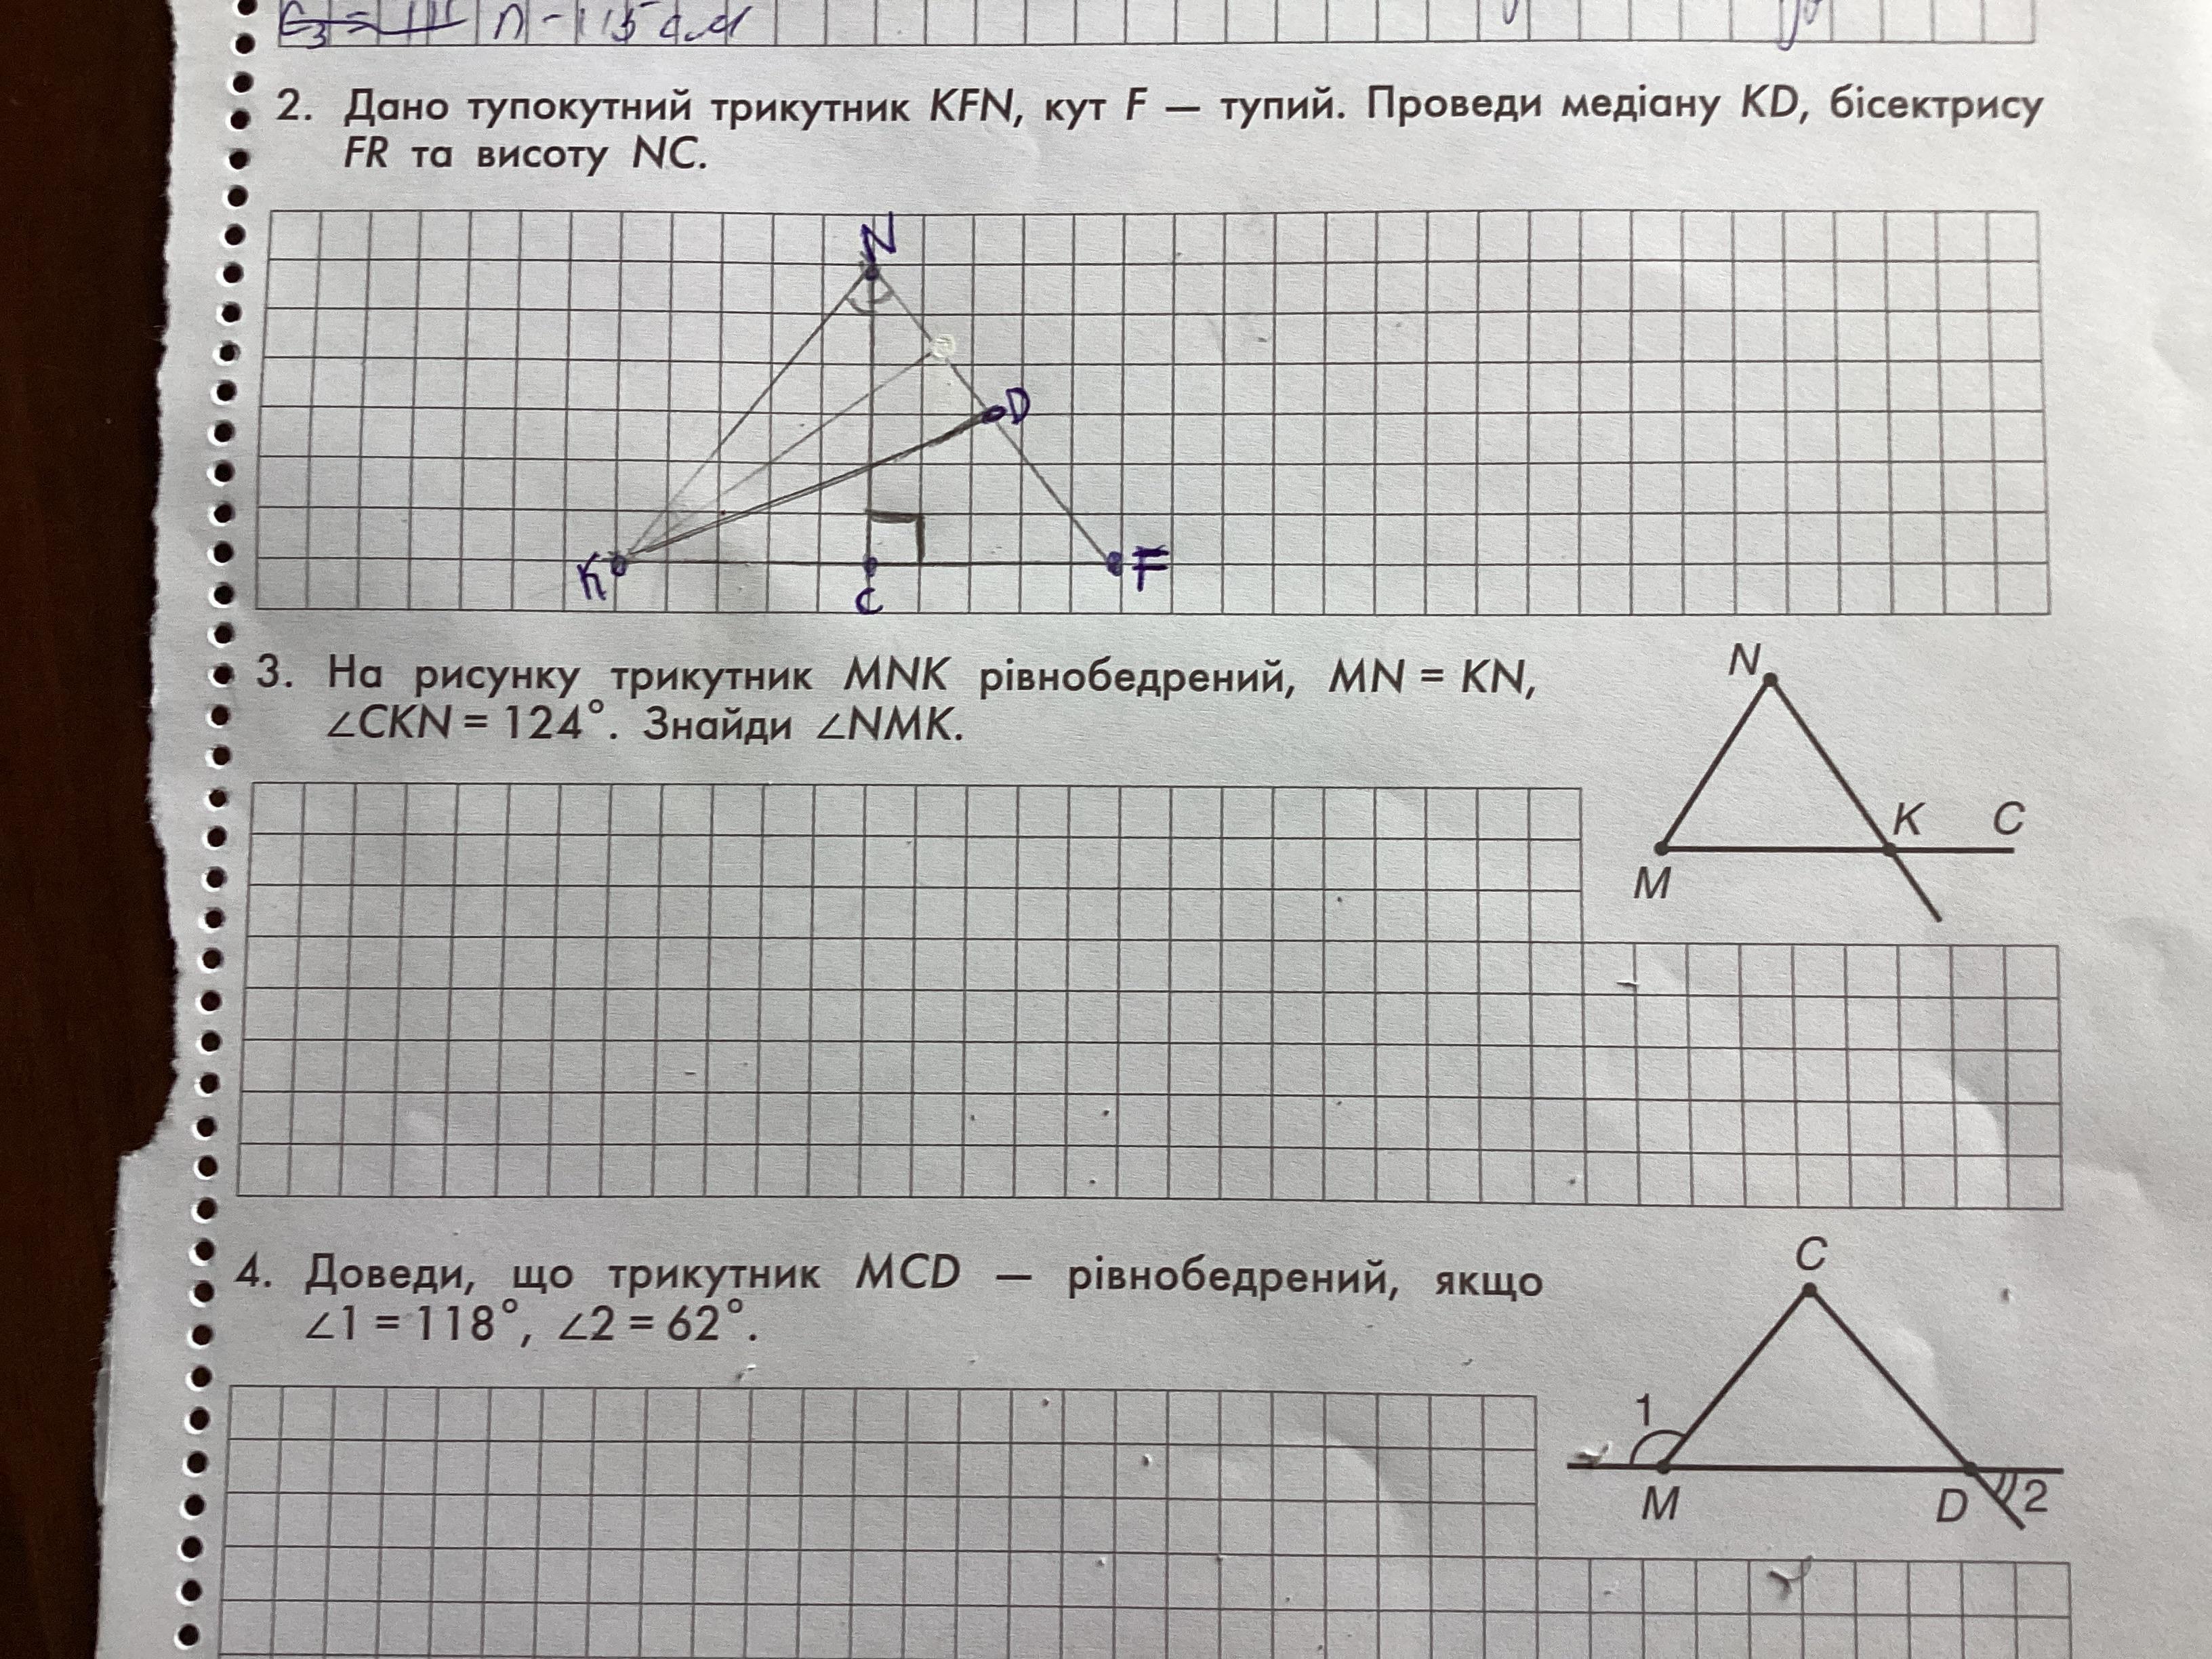 2. Дано тупокутний трикутник KFN, кут F — тупий. Проведи медіану KD, бісектрису
FR та висоту NC.
N
D
K
F
C
3. На рисунку трикутник MNK рівнобедрений, MN = KN,
∠CKN = 124°. Знайди ∠NMK.
N
K C
M
4. Доведи, що трикутник MCD — рівнобедрений, якщо
∠1 = 118°, ∠2 = 62°.
C
1
M D 2